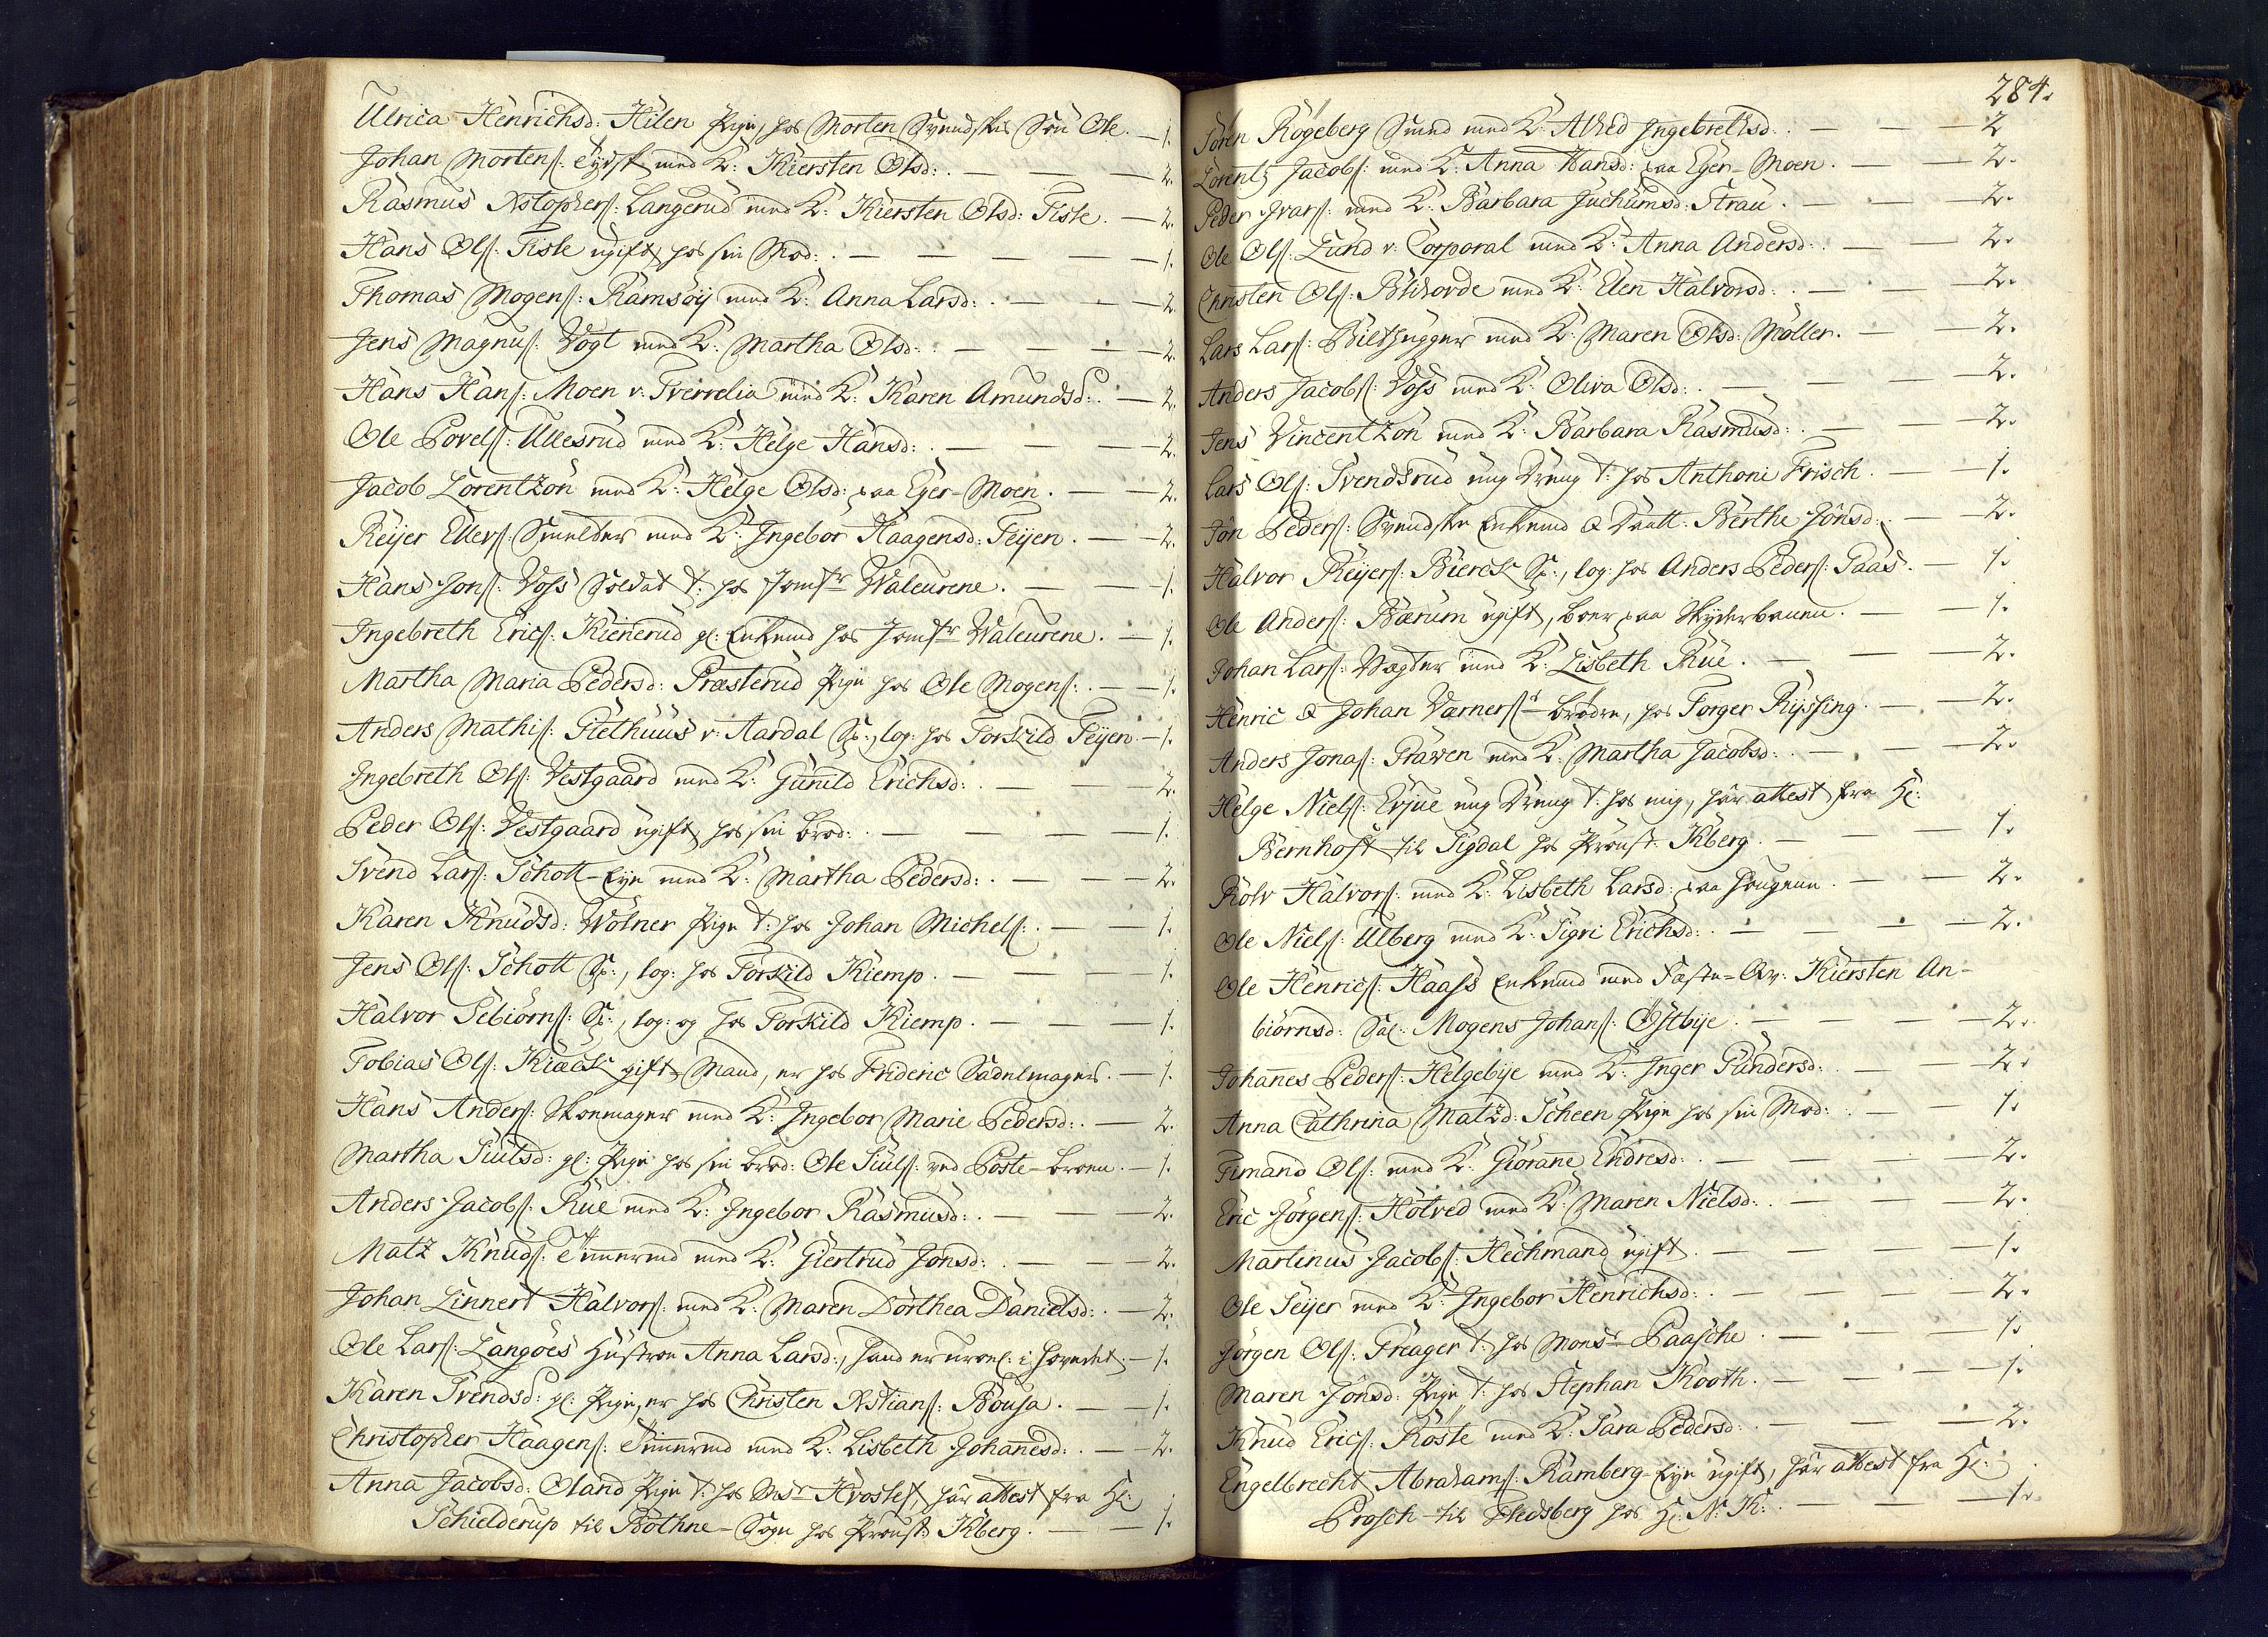 Ulrica Henrichsd: Hilen Pige, hos Morten Svendskes Søn Ole. — 1.
Johan Mortens: Tydsk med K: Kiersten Olsd: . — — — 2.
Rasmus Xstophers: Langerud med K: Kiersten Olsd: Fisle. — 2.
Hans Ols: Fisle ugift, hos sin Mod: . — — — — — 1.
Thomas Mogens: Ramsøy med K: Anna Larsd: . — — — 2.
Jens Magnus: Vogt med K: Martha Olsd: . — — — 2.
Hans Hans: Moen v: Tverrelia med K: Karen Amundsd: . — 2.
Ole Povels: Ullesrud med K: Helge Hansd: . — — — 2.
Jacob Lorentzön med K: Helge Olsd: paa Eger-Moen. — — 2.
Reijer Ellevs: Smelter med K: Ingebor Haagensd: Feijen. — — 2.
Hans Jons: Voss Soldat t: hos Jomfr Waleurene. — — 1.
Ingebreth Erics: Kienerud gl: Enkemd hos Jomfr Waleurene. — 1.
Martha Maria Pedersd: Præsterud Pige hos Ole Mogens: . — — 1.
Anders Mathis: Fiethuus v: Aardal Sp:, log: hos Torkild Feijen. — 1.
Ingebreth Ols: Vestgaard med K: Gunild Erichsd: . — — — 2.
Peder Ols: Vestgaard ugift, hos sin Brod: . — — — — 1.
Svend Lars: Schott-Eye med K: Martha Pedersd: . — — — 2.
Karen Knudsd: Wolner Pige t: hos Johan Michels: . — — 1.
Jens Ols: Schott Sp:, log: hos Torkild Kiemp. — — — 1.
Halvor Sebiørns: Sp:, log: og hos Torkild Kiemp. — — — 1.
Tobias Ols: Kiæck gift Mand, er hos Frideric Sadelmagers. — 1.
Hans Anders: Skomager med K: Ingebor Marie Pedersd: . — 2.
Martha Siulsd: gl: Pige hos sin Brod: Ole Siuls: ved Poste-Broen. — 1.
Anders Jacobs: Rue med K: Ingebor Rasmusd: . — — — 2.
Matz Knuds: Tømmermd med K: Giertrud Jonsd: . — — — 2.
Johan Linnert Halvors: med K: Maren Dorthea Danielsd: . — 2.
Ole Lars: Langöes Hustroe Anna Larsd:, hand er uroel: i Hovedet. — 1.
Karen Svendsd: gl: Pige, er hos Christen Xstians: Bousa. — — 1.
Christopher Haagens: Tømmermd med K: Lisbeth Johanesd: . — — 2.
Anna Jacobsd: Oland Pige t: hos Msr Hvoslef, har attest fra Hr:
Schielderup til Bothne-Sogn hos Proust Kberg. — — 1.
284.
Søren Rögeberg Smed med K: Alhed Ingebrethsd: . — — — 2
Lorentz Jacobs: med K: Anna Hansd: paa Eger-Moen. — — 2.
Peder Ivars: med K: Barbara Juchumsd: Strau. — — — 2.
Ole Ols: Lund v: Corporal med K: Anna Andersd: . — — 2.
Christen Ols: Blixorde med K: Elen Halvorsd: . — — — 2.
Lars Lars: Bilthugger med K: Maren Olsd: Møller. — — 2.
Anders Jacobs: Voss med K: Oliva Olsd: . — — — — 2.
Jens Vincentzön med K: Barbara Rasmusd: . — — — 2.
Lars Ols: Svendsrud ung Dreng t: hos Anthoni Frisch. — — 1.
Jon Peders: Svendske Enkemd & Daatt: Berthe Jonsd: . — — 2.
Halvor Reijers: Bierck Sp:, log: hos Anders Peders: Saas. — 1.
Ole Anders: Bærum ugift, boer paa Skyderbanen. — — 1.
Johan Lars: Vægter med K: Lisbeth Rue. — — — 2.
Henric & Johan Værners: Brödre, hos Torger Ryssing. — — 2.
Anders Jonas: Graven med K: Martha Jacobsd: . — — — 2.
Helge Niels: Evjue ung Dreng t: hos mig, har attest fra Hr:
Bernhoft til Sigdal hos Proust Kberg. — — — — 1.
Rolv Halvors: med K: Lisbeth Larsd: paa Haugene. — — 2.
Ole Niels: Ulberg med K: Sigri Erichsd: . — — — — 2.
Ole Henrics: Haass Enkemd med Fæste-Qv: Kiersten An-
biørnsd: Sal: Mogens Johans: Östbye. — — — — 2.
Johannes Peders: Helgebye med K: Inger Gundersd: . — — 2.
Anna Cathrina Matzd: Scheen Pige hos sin Mod: . — — 1.
Fimand Ols: med K: Giörane Endresd: . — — — — 2.
Eric Jörgens: Hotved med K: Maren Nielsd: . — — — 2.
Martinus Jacobs: Hechmand ugift. — — — — 1.
Ole Seijer med K: Ingebor Henrichsd: . — — — — 2.
Jörgen Ols: Freager t: hos Monsr Paasche. — — — 1.
Maren Jonsd: Pige t: hos Stephan Kooth. — — — 1.
Knud Erics: Röste med K: Sara Pedersd: . — — — 2.
Engelbrecht Abrahams: Ramberg-Eye ugift, har attest fra Hr:
Brosch til Flesberg hos Hr: N: K: . — — — 1.